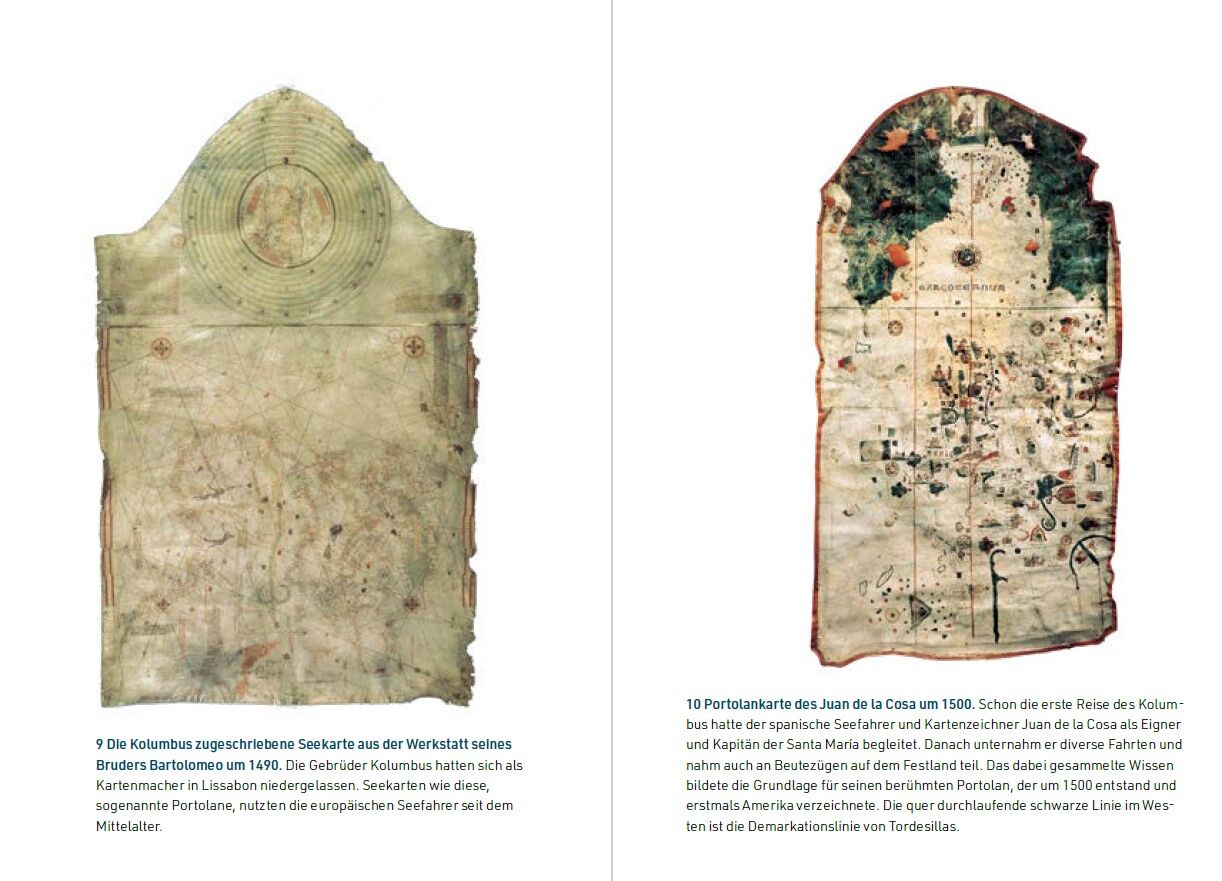 MARE OCEANUM
9 Die Kolumbus zugeschriebene Seekarte aus der Werkstatt seines
Bruders Bartolomeo um 1490. Die Gebrüder Kolumbus hatten sich als
Kartenmacher in Lissabon niedergelassen. Seekarten wie diese,
sogenannte Portolane, nutzten die europäischen Seefahrer seit dem
Mittelalter.
10 Portolankarte des Juan de la Cosa um 1500. Schon die erste Reise des Kolum-
bus hatte der spanische Seefahrer und Kartenzeichner Juan de la Cosa als Eigner
und Kapitän der Santa María begleitet. Danach unternahm er diverse Fahrten und
nahm auch an Beutezügen auf dem Festland teil. Das dabei gesammelte Wissen
bildete die Grundlage für seinen berühmten Portolan, der um 1500 entstand und
erstmals Amerika verzeichnete. Die quer durchlaufende schwarze Linie im Wes-
ten ist die Demarkationslinie von Tordesillas.